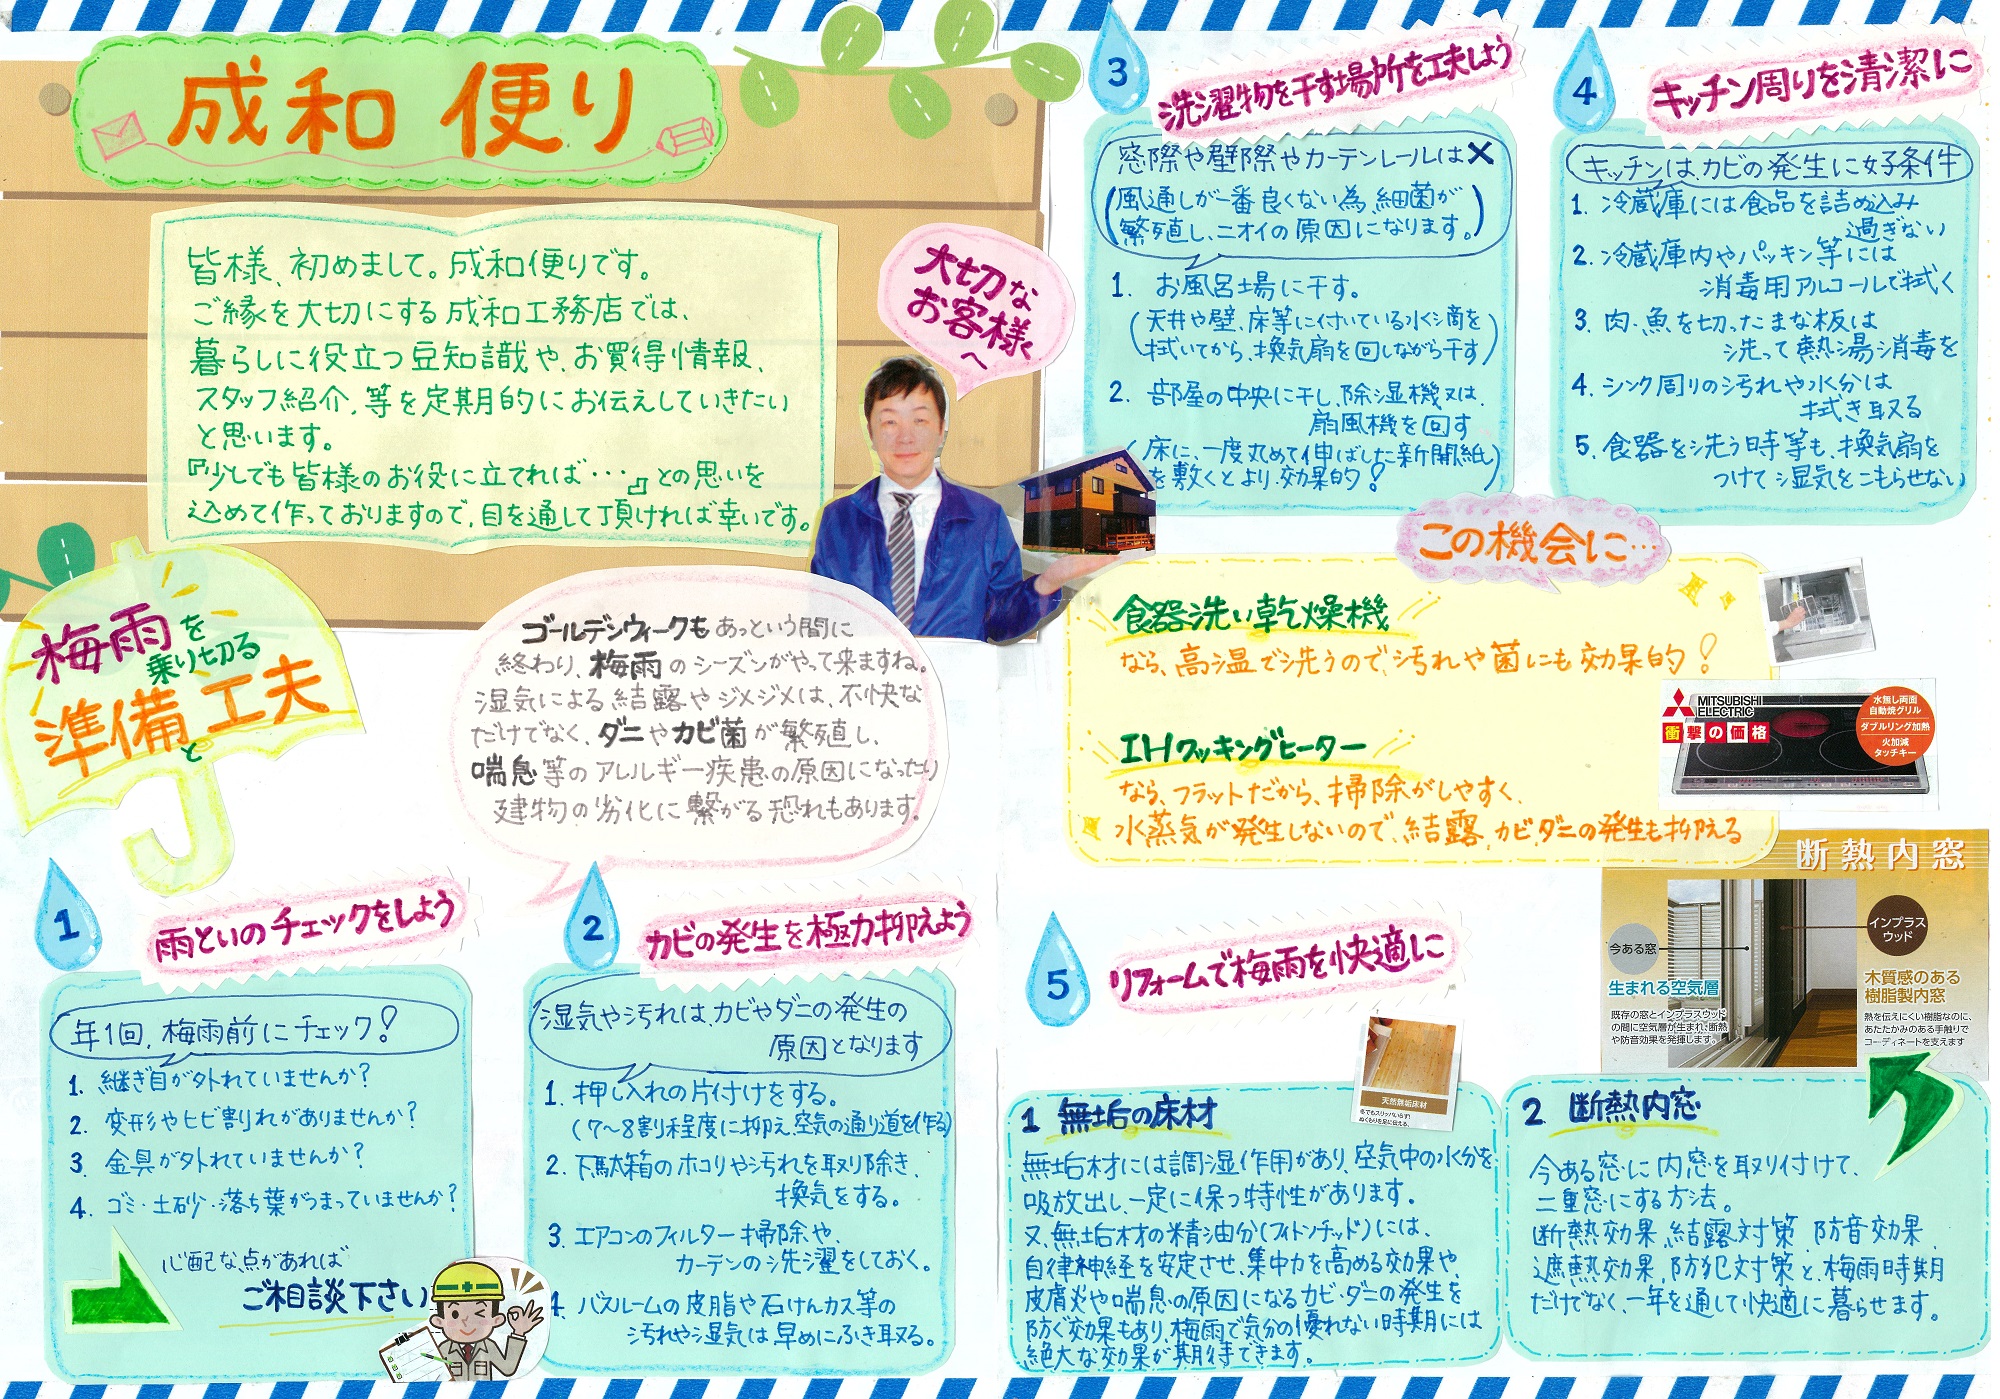 成和 便り
皆様、初めまして。成和便りです。
ご縁を大切にする成和工務店では、
暮らしに役立つ豆知識や、お買得情報、
スタッフ紹介、等を定期的にお伝えしていきたい
と思います。
『少しでも皆様のお役に立てれば・・・』との思いを
込めて作っておりますので、目を通して頂ければ幸いです。
大切な
お客様
へ
梅雨を
乗り切る
準備と
工夫
ゴールデンウィークもあっという間に
終わり、梅雨のシーズンがやって来ますね。
湿気による結露やジメジメは、不快な
だけでなく、ダニやカビ菌が繁殖し、
喘息等のアレルギー疾患の原因になったり
建物の劣化に繋がる恐れもあります。
1
雨といのチェックをしよう
年1回、梅雨前にチェック!
1. 継ぎ目が外れていませんか?
2. 変形やヒビ割れがありませんか?
3. 金具が外れていませんか?
4. ゴミ・土砂・落ち葉がつまっていませんか?
心配な点があれば
ご相談下さい
2
カビの発生を極力抑えよう
湿気や汚れは、カビやダニの発生の
原因となります
1. 押し入れの片付けをする。
(7〜8割程度に抑え、空気の通り道を作る)
2. 下駄箱のホコリや汚れを取り除き、
換気をする。
3. エアコンのフィルター掃除や、
カーテンの洗濯をしておく。
4. バスルームの皮脂や石けんカス等の
汚れや湿気は早めにふき取る。
3
洗濯物を干す場所を工夫しよう
窓際や壁際やカーテンレールは✕
(風通しが一番良くない為、細菌が
繁殖し、ニオイの原因になります。)
1. お風呂場に干す。
(天井や壁、床等に付いている水滴を
拭いてから、換気扇を回しながら干す)
2. 部屋の中央に干し、除湿機又は、
扇風機を回す
(床に、一度丸めて伸ばした新聞紙
を敷くとより効果的!)
4
キッチン周りを清潔に
キッチンは、カビの発生に好条件
1. 冷蔵庫には食品を詰め込み
過ぎない
2. 冷蔵庫内やパッキン等には
消毒用アルコールで拭く
3. 肉・魚を切ったまな板は
洗って熱湯消毒を
4. シンク周りの汚れや水分は
拭き取る
5. 食器を洗う時等も、換気扇を
つけて湿気をこもらせない
この機会に…
食器洗い乾燥機
なら、高温で洗うので、汚れや菌にも効果的!
IHクッキングヒーター
なら、フラットだから、掃除がしやすく、
水蒸気が発生しないので、結露、カビ、ダニの発生も抑える
MITSUBISHI
ELECTRIC
衝撃の価格
水無し両面
自動焼グリル
ダブルリング加熱
火加減
タッチキー
5
リフォームで梅雨を快適に
断熱内窓
今ある窓
インプラス
ウッド
生まれる空気層
既存の窓とインプラスウッド
の間に空気層が生まれ、断熱
や防音効果を発揮します。
木質感のある
樹脂製内窓
熱を伝えにくい樹脂なのに、
あたたかみのある手触りで
コーディネートを支えます
天然無垢床材
冬でもスリッパいらず!
ぬくもりを足に伝える。
1 無垢の床材
無垢材には調湿作用があり、空気中の水分を
吸放出し、一定に保つ特性があります。
又、無垢材の精油分(フィトンチッド)には、
自律神経を安定させ、集中力を高める効果や、
皮膚炎や喘息の原因になるカビ・ダニの発生を
防ぐ効果もあり、梅雨で気分の優れない時期には
絶大な効果が期待できます。
2. 断熱内窓
今ある窓に内窓を取り付けて、
二重窓にする方法。
断熱効果、結露対策、防音効果、
遮熱効果、防犯対策と、梅雨時期
だけでなく、一年を通して快適に暮らせます。